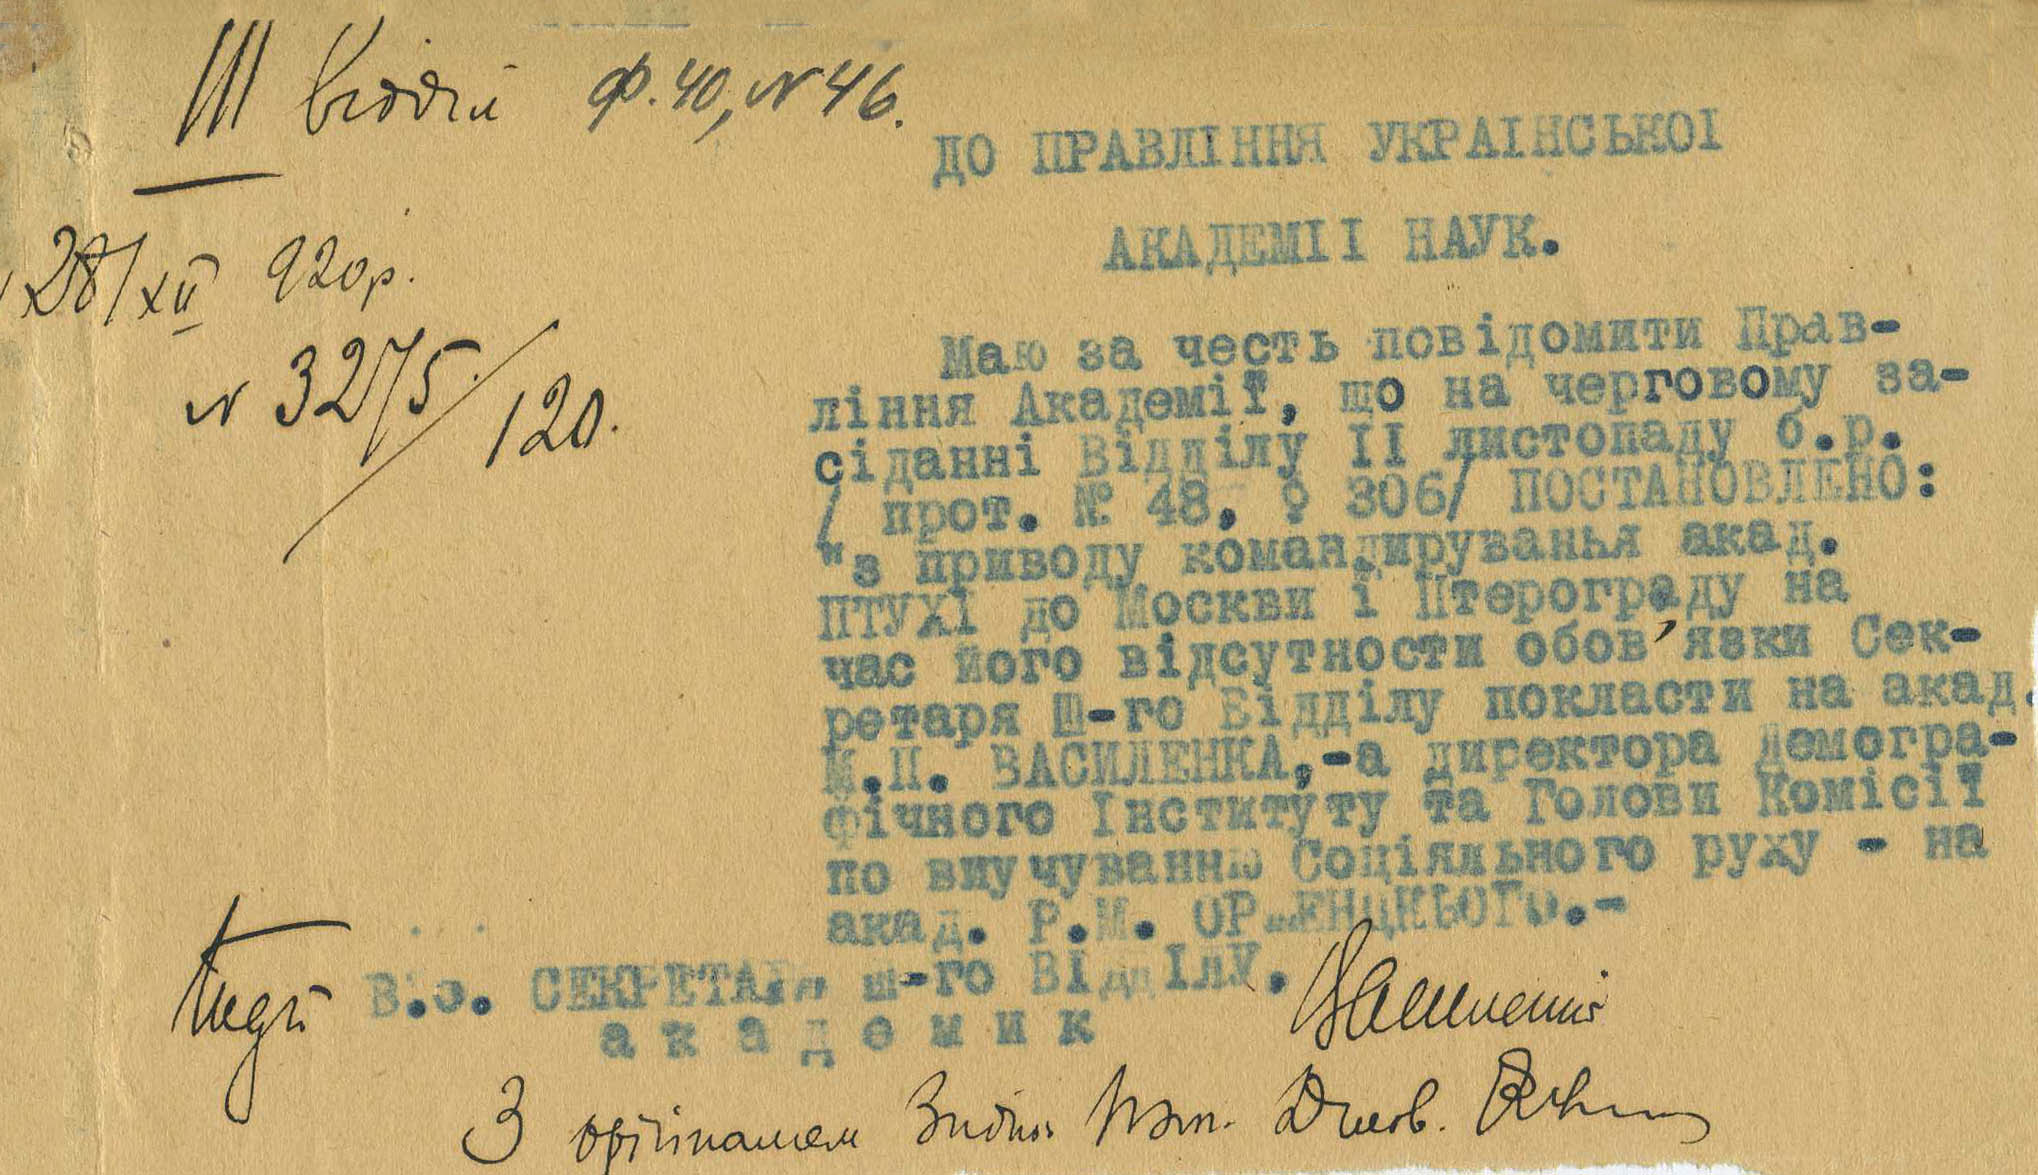 III відділ ф.40, № 46.
ДО ПРАВЛІННЯ УКРАІНСЬКОІ
АКАДЕМІІ НАУК.
28/XII 920р.
№ 3275/120.
Маю за честь повідомити Прав-
ління Академії, що на черговому за-
сіданні Відділу II листопаду б.р.
/ прот. № 48, § 306/ ПОСТАНОВЛЕНО:
"з приводу командируванья акад.
ПТУХІ до Москви і Птерограду на
час його відсутности обов'язки Сек-
ретаря Ш-го Відділу покласти на акад.
М.П. ВАСИЛЕНКА,-а директора Демогра-
фічного Інституту та Голови Комісії
по виучуванню Соціяльного руху - на
акад. Р.М. ОРЖЕНЦЬКЬОГО.-
В.о. СЕКРЕТАРЯ Ш-го ВІДДІЛУ.
академик
З орігіналом Згідно